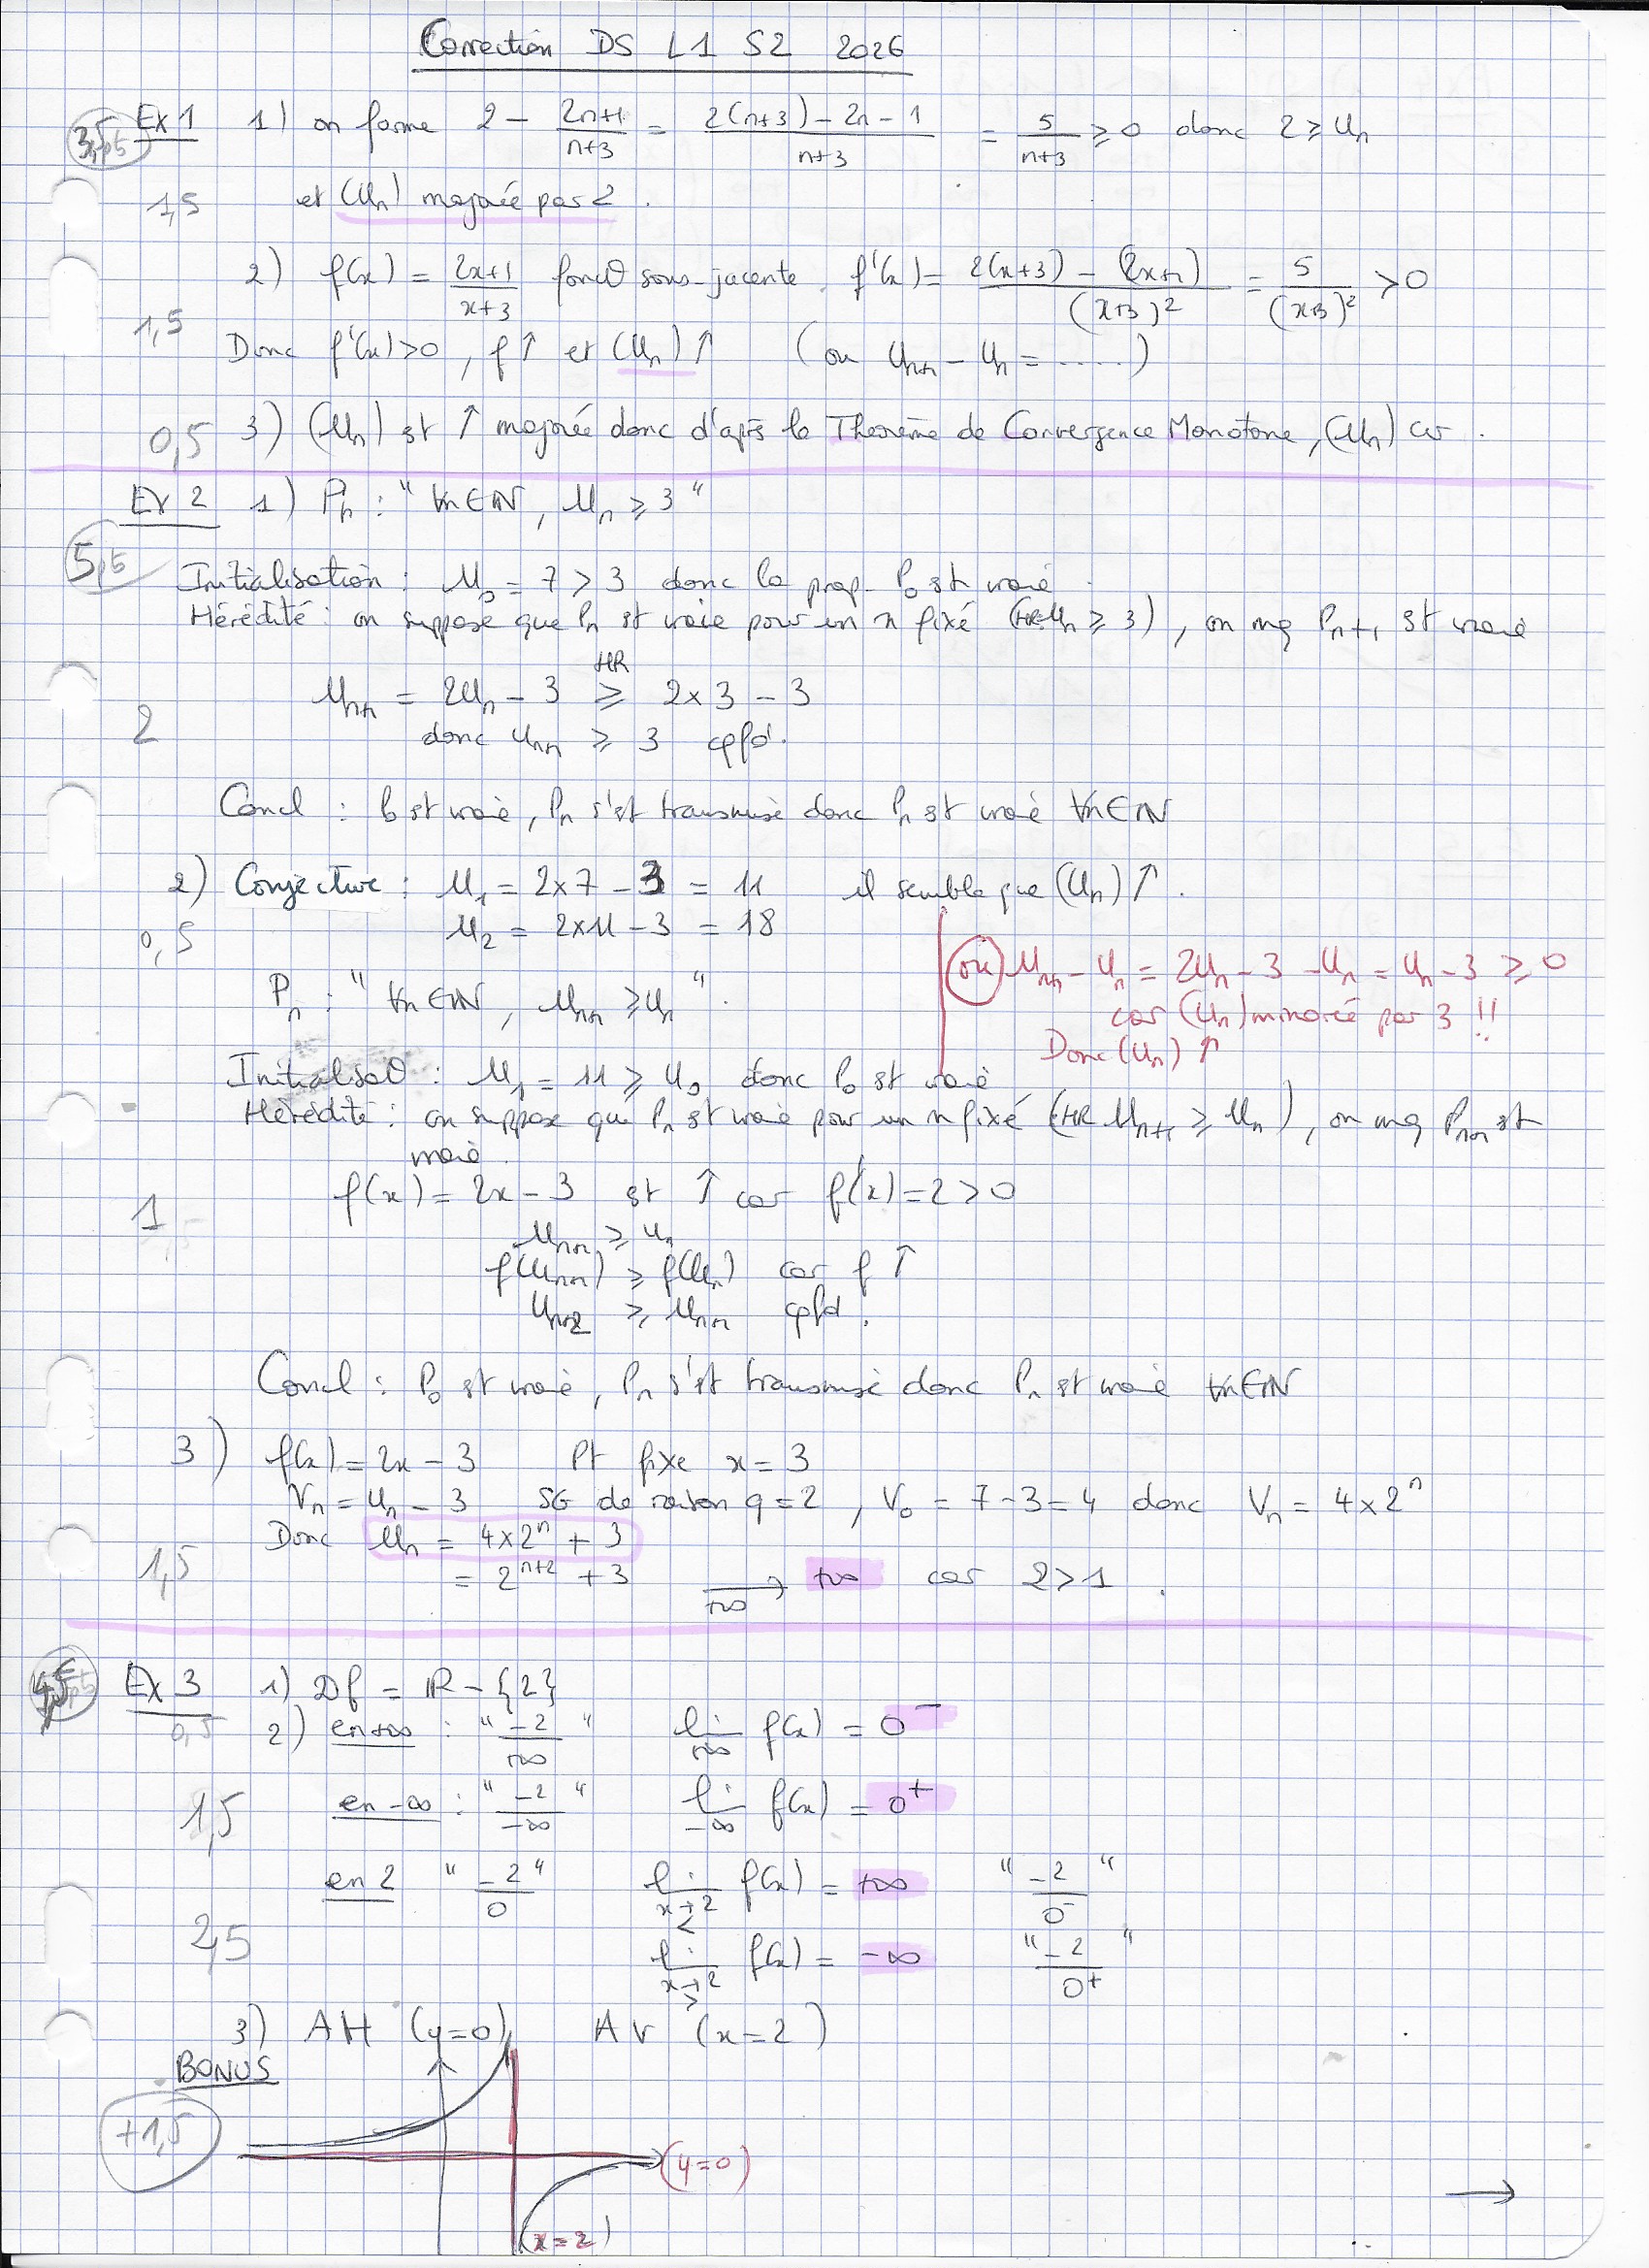 Correction DS L1 S2 2026
3,5 Ex 1 1) on forme 2 - (2n+1)/(n+3) = (2(n+3) - 2n - 1)/(n+3) = 5/(n+3) ≥ 0 donc 2 ≥ Un
1,5 et (Un) majorée par 2.
2) f(x) = (2x+1)/(x+3) foncθ sous-jacente. f'(x) = (2(x+3) - (2x+1))/(x+3)² = 5/(x+3)² > 0
1,5 Donc f'(x) > 0, f↑ et (Un)↑ (ou Un+1 - Un = .....)
0,5 3) (Un) est ↑ majorée donc d'après le Théorème de Convergence Monotone, (Un) cv.
Ex 2 1) Pn : "∀n∈ℕ, Un ≥ 3"
5,5 Initialisation : U0 = 7 > 3 donc la prop. P0 est vraie.
Hérédité : on suppose que Pn est vraie pour un n fixé (HR Un ≥ 3), on mq Pn+1 est vraie
HR
Un+1 = 2Un - 3 ≥ 2×3 - 3
2 donc Un+1 ≥ 3 cqfd.
Concl : P0 est vraie, Pn s'est transmise donc Pn est vraie ∀n∈ℕ
2) Conjecture : U1 = 2×7 - 3 = 11 il semble que (Un)↑.
0,5 U2 = 2×11 - 3 = 18
ou Un+1 - Un = 2Un - 3 - Un = Un - 3 ≥ 0
Pn : "∀n∈ℕ, Un+1 ≥ Un".
car (Un) minorée par 3 !!
Donc (Un)↑
Initialisaθ : U1 = 11 ≥ U0 donc P0 est vraie
Hérédité : on suppose que Pn est vraie pour un n fixé (HR Un+1 ≥ Un), on mq Pn+1 est
vraie.
f(x) = 2x - 3 est ↑ car f'(x) = 2 > 0
1 Un+1 ≥ Un
f(Un+1) ≥ f(Un) car f↑
Un+2 ≥ Un+1 cqfd.
Concl : P0 est vraie, Pn s'est transmise donc Pn est vraie ∀n∈ℕ
3) f(x) = 2x - 3 Pt fixe x = 3
Vn = Un - 3 SG de raison q = 2, V0 = 7 - 3 = 4 donc Vn = 4×2ⁿ
Donc Un = 4×2ⁿ + 3
1,5 = 2ⁿ⁺² + 3 ⟶ +∞ car 2 > 1.
+∞
4,5 Ex 3 1) Df = ℝ - {2}
0,5 2) en +∞ : "-2/+∞" lim +∞ f(x) = 0⁻
1,5 en -∞ : "-2/-∞" lim -∞ f(x) = 0⁺
en 2 "-2/0" lim x→2 < f(x) = +∞ "-2/0⁻"
2,5 lim x→2 > f(x) = -∞ "-2/0⁺"
3) AH (y=0) AV (x=2)
BONUS
+1,5
(y=0)
(x=2)
→